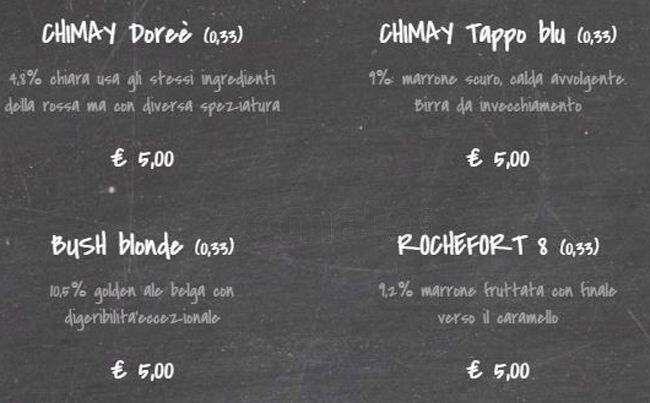 CHIMAY Doreè (0,33)
4,8% chiara usa gli stessi ingredienti
della rossa ma con diversa speziatura
€ 5,00
CHIMAY Tappo blu (0,33)
9% marrone scuro, calda avvolgente.
Birra da invecchiamento
€ 5,00
BUSH blonde (0,33)
10,5% golden ale belga con
digeribilita'eccezionale
€ 5,00
ROCHEFORT 8 (0,33)
9,2% marrone fruttata con finale
verso il caramello
€ 5,00